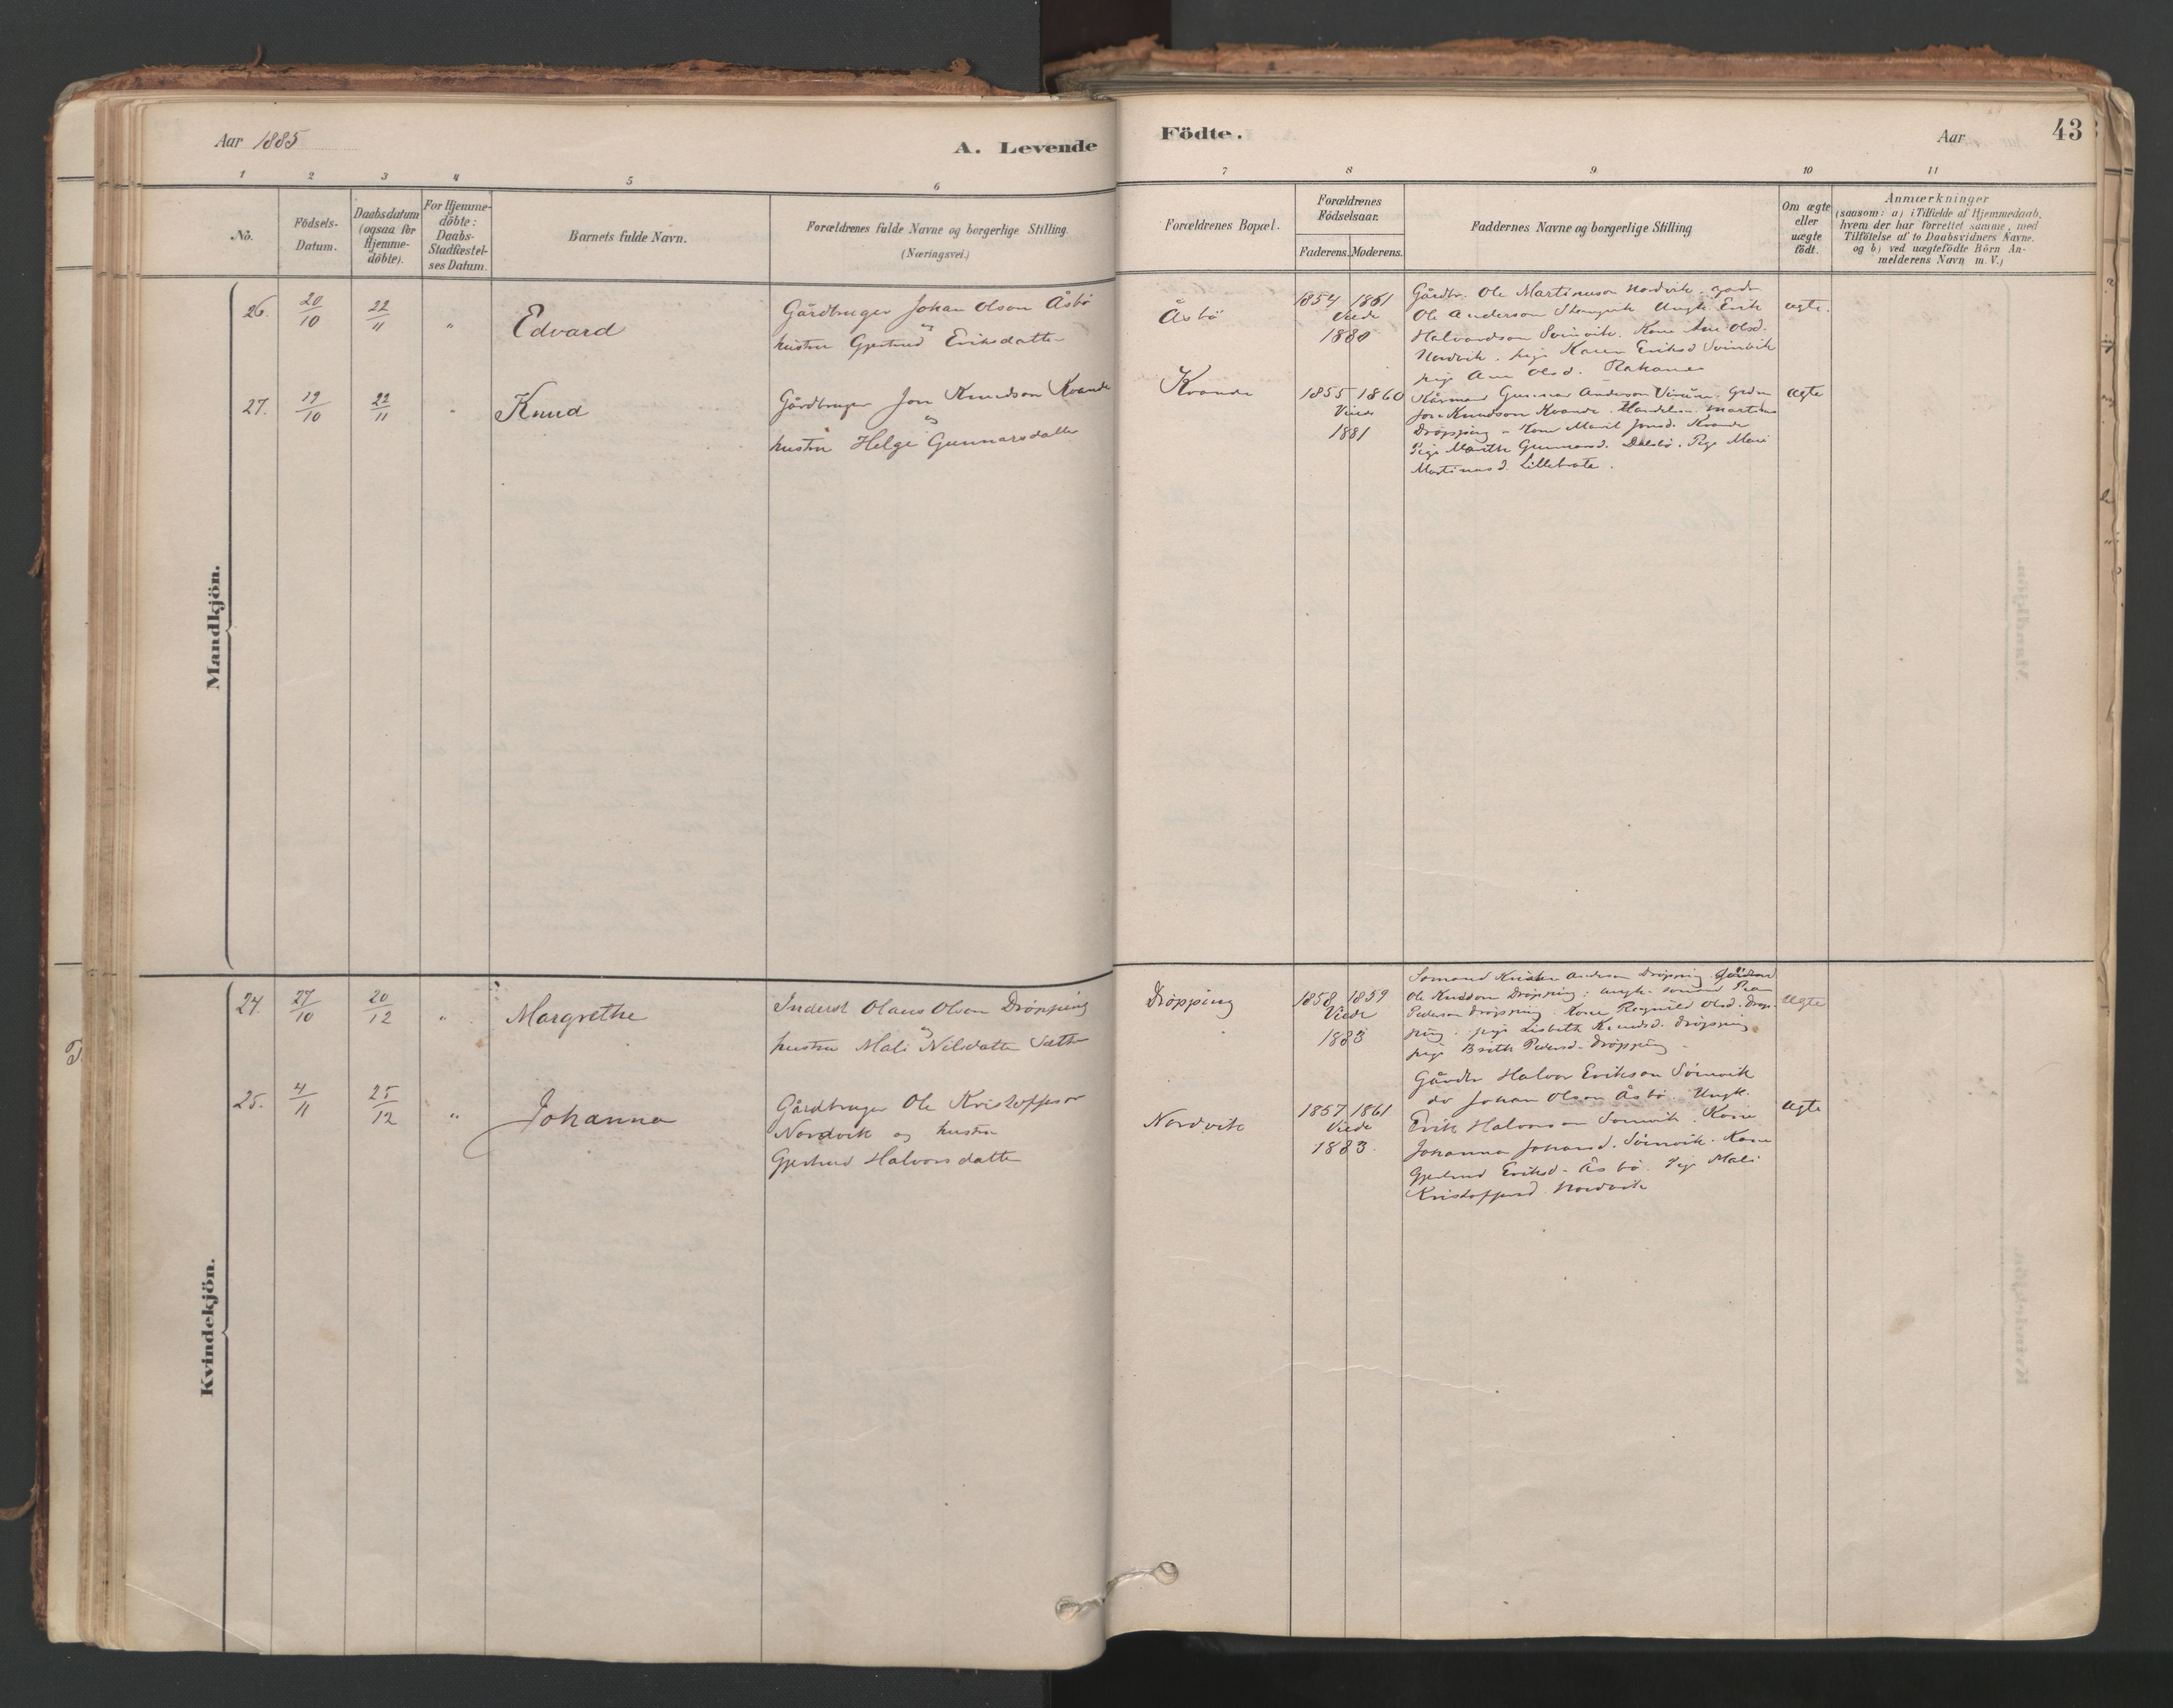 Aar 1885
A. Levende
Födte.
Aar
43
1 2 3 4 5 6 7 8 9 10 11
No.
Födsels-
Datum.
Daabsdatum
(ogsaa för
Hjemme-
döbte).
For Hjemme-
döbte:
Daabs-
Stadfæstel-
ses Datum.
Barnets fulde Navn.
Forældrenes fulde Navne og borgerlige Stilling.
(Næringsvei.)
Forældrenes Bopæl.
Forældrenes
Födselsaar.
Faderens. Moderens.
Faddernes Navne og borgerlige Stilling
Om ægte
eller
uægte
födt.
Anmærkninger
(saasom: a) i Tilfælde af Hjemmedaab,
hvem der har forrettet samme, med
Tilföielse af to Daabsvidners Navne.
og b) ved uægtefödte Börn An-
melderens Navn m. V.)
Mandkjön.
26. 20/10 22/11 " Edvard
Gårdbruger Johan Olson Åsbö
og
hustru Gjertrud Eriksdatter
Åsbö
1854 1861
Viede
1880
Gårdbr. Ole Martinuson Nordvik. gardr
Ole Anderson Ungk. Erik
Halvordson Svinvik. Kone Ane Olsd.
Nordvik. pige Karen Eriksd Svinvik
pige Ane Olsd.
ægte.
27. 19/10 22/11 " Knud
Gårdbruger Jon Knudson Kvande
og
hustru Helge Gunnarsdatter
Kvande
1855 1860
Viede
1881
Kårmand Gunnar Anderson
Jon Knudson Kvande.
Dröpping. Kone Marit Jonsd. Kvande
Pige Marith Gunnarsd. Pige Mari
Martinusd. Lillebrate.
ægte
Kvindekjön.
24. 27/10 20/12 " Margrethe
Inderst Olaus Olson Dröpping
og
hustru Mali Nilsdatter Sæther
Dröpping
1858 1859
Viede
1883
Sömand Anderson Dröpping.
Ole Knudson Dröpping; ungk. sömand
Pederson Dröpping. Kone Ragnild Olsd. Dröp-
ping. pige Lisbeth Knudsd. Dröpping
pige Brith Pedersd. Dröpping.
ægte
25. 4/11 25/12 " Johanna
Gårdbruger Ole Kristoffersor
Nordvik og hustru
Gjertrud Halvorsdatter
Nordvik
1857 1861
Viede
1883.
Gårdbr Halvor Erikson Svinvik
do Johan Olson Åsbö. Ungk.
Erik Halvorson Svinvik. Kone
Johanna Johansd. Svinvik. Kone
Gjertrud Eriksd. Åsbö. Pige Mali
Kristoffersd. Nordvik
ægte